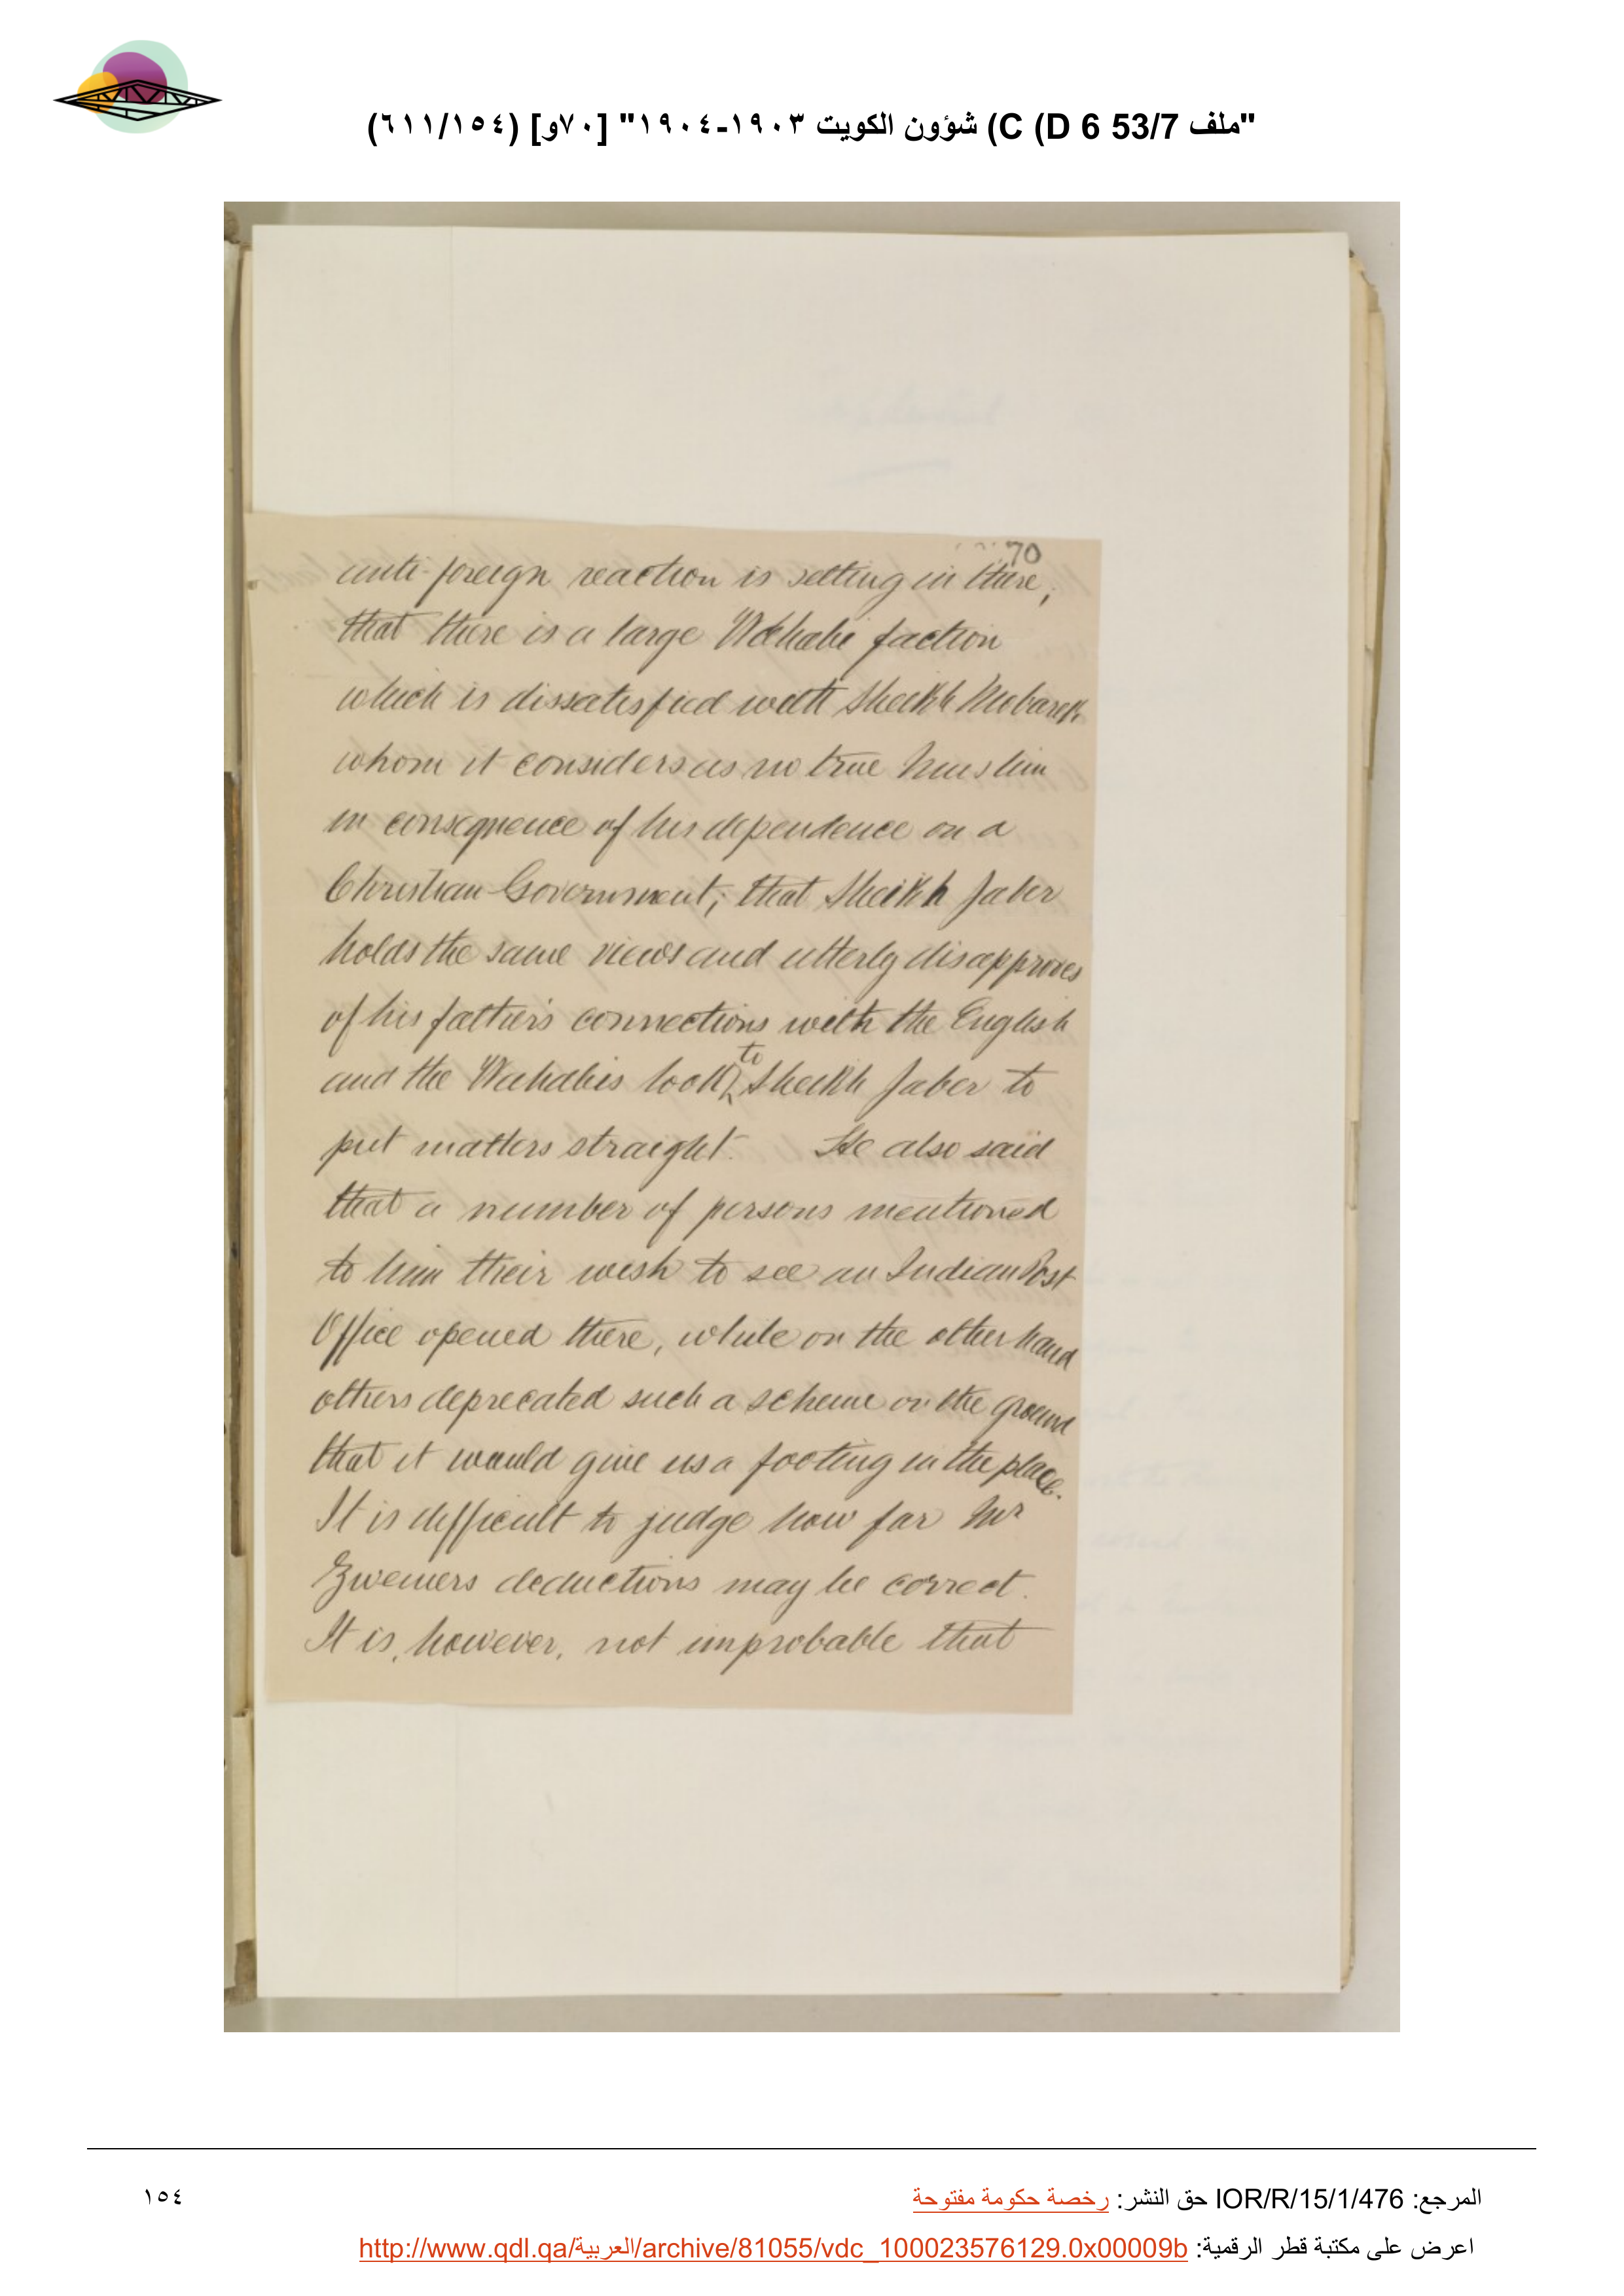 "ملف 53/7 D 6) C) شؤون الكويت ١٩٠٣-١٩٠٤" [٧٠و] (٦١١/١٥٤)
70
anti-foreign reaction is setting in there;
that there is a large Wahabi faction
which is dissatisfied with Sheikh Mobarek
whom it considers as no true Muslim
in consequence of his dependence on a
Christian Government; that Sheikh Jaber
holds the same views and utterly disapproves
of his father's connections with the English
and the Wahabis look to Sheikh Jaber to
put matters straight. He also said
that a number of persons mentioned
to him their wish to see an Indian Post
Office opened there, while on the other hand
others deprecated such a scheme on the ground
that it would give us a footing in the place.
It is difficult to judge how far Mr
Zwemers deductions may be correct.
It is, however, not improbable that
المرجع: IOR/R/15/1/476 حق النشر: رخصة حكومة مفتوحة
١٥٤
اعرض على مكتبة قطر الرقمية: http://www.qdl.qa/العربية/archive/81055/vdc_100023576129.0x00009b